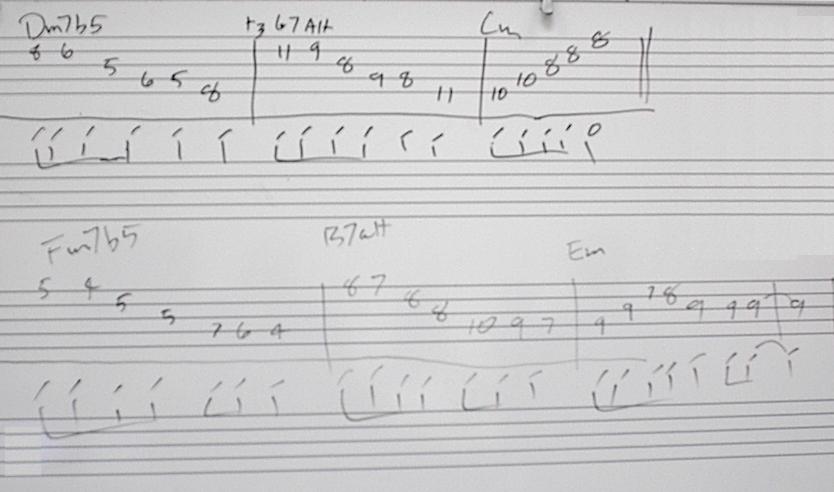 Dm7b5 G7Alt Cm
8 6 5 6 5 8 11 9 8 9 8 11 10 10 8 8 8
Fm7b5 B7alt Em
5 4 5 5 7 6 4 8 7 8 8 10 9 7 9 9 7 8 9 9 9 9